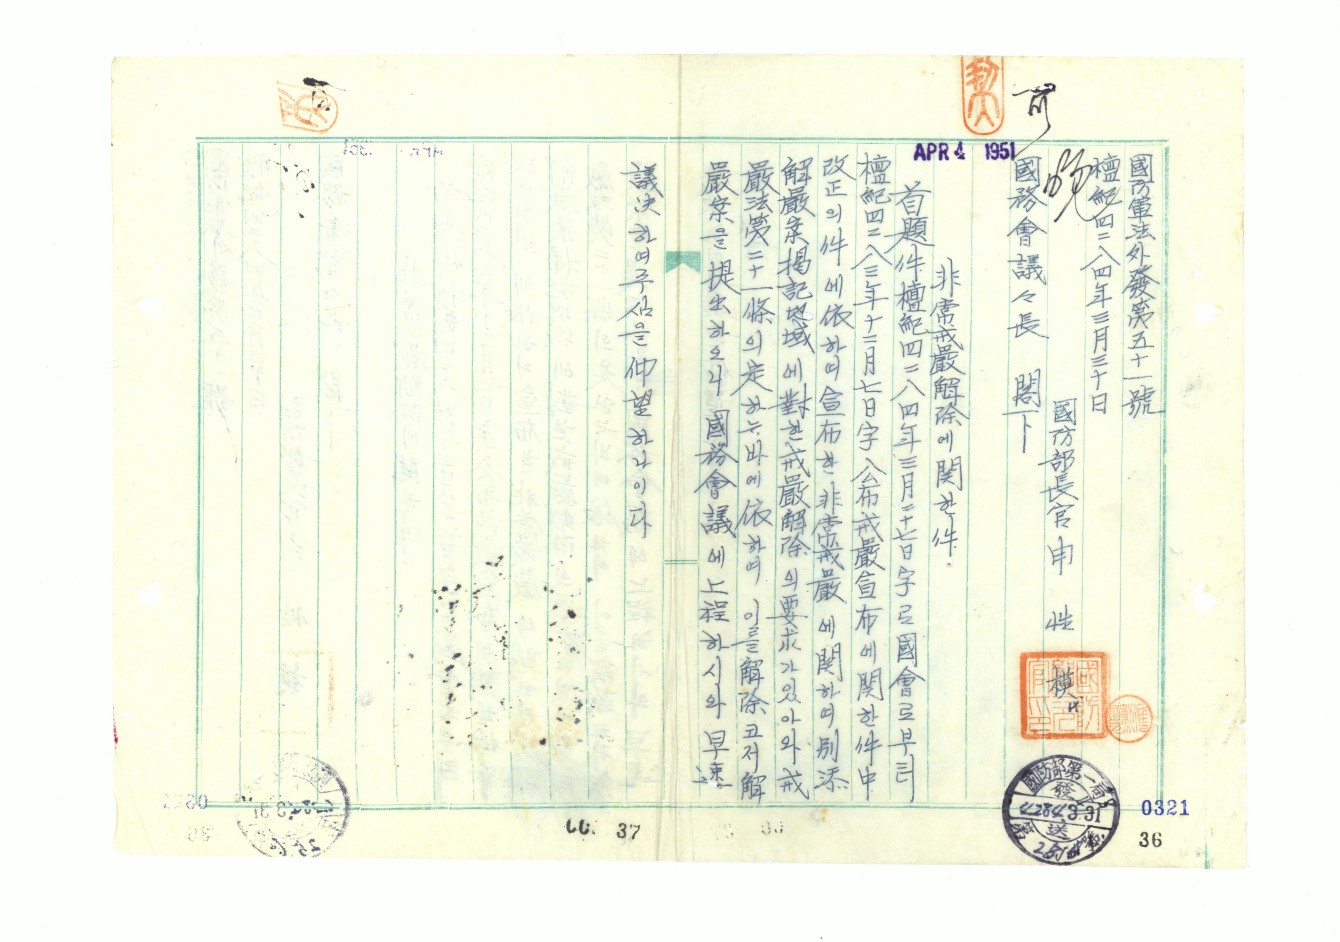 國防軍法外發第五十一號
檀紀四二八四年三月三十日
國防部長官 申 性 模
國務會議々長 閣下
非常戒嚴解除에 関한 件
首題件 檀紀四二八四年三月二十七日字로 國會로부터
檀紀四二八三年十二月七日字 公布 戒嚴宣布에 関한 件中
改正의 件에 依하여 宣布한 非常戒嚴에 関하여 別添
解嚴案揭記地域에 對한 戒嚴解除의 要求가 있아와 戒
嚴法第二十一條의 定하는바에 依하여 이를 解除코저 解
嚴案을 提出하오니 國務會議에 上程하시와 早速
議決하여주심을 仰望하나이다
APR 4 1951
可
國防部第一局
發
4284 3 31
送
0321
36
37